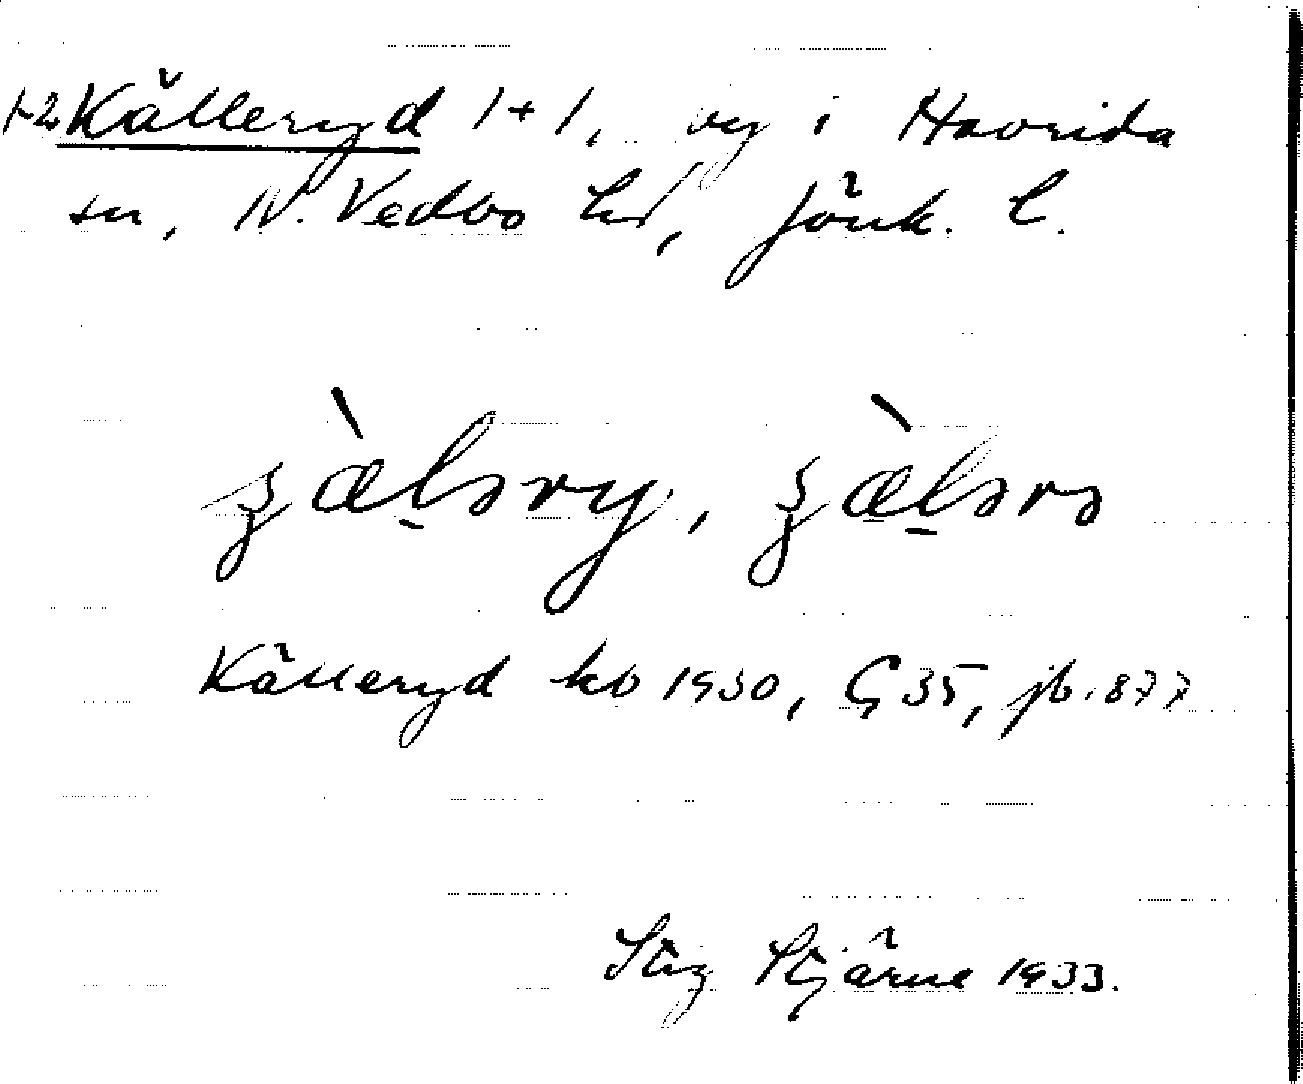 1-2 Källeryd 1+1, by i Haurida
sn, N. Vedbo hd, Jönk. l.
ʒàḷəry, ʒæ̀ḷərə
Källeryd kb 1930, G 35, jb. 877
Stig Stjärne 1933.